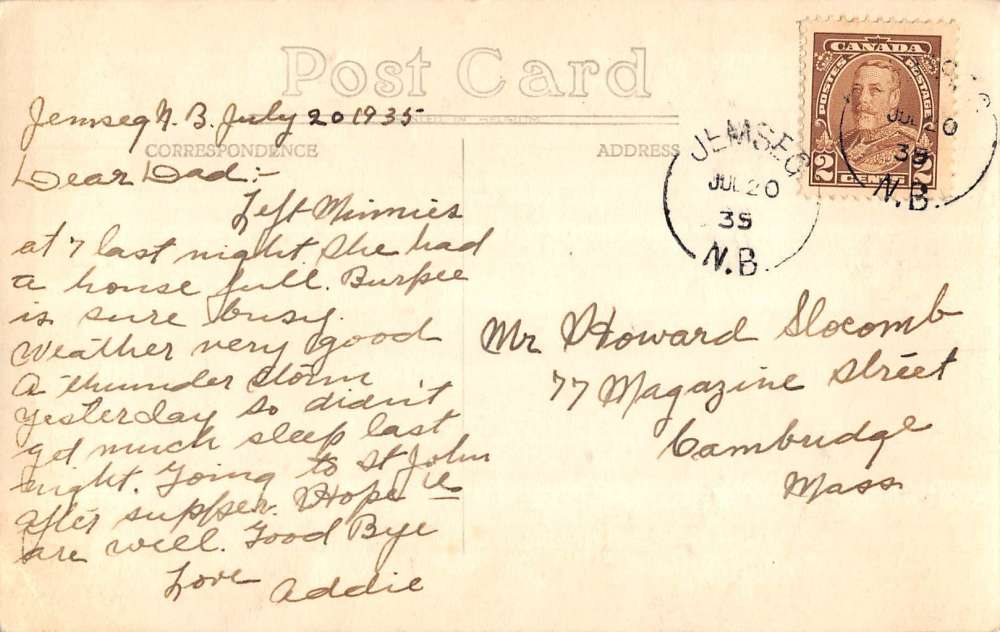 Post Card
CANADA
POSTES POSTAGE
2 CENTS 2
JEMSEG
JUL 20
35
N.B.
JUL 20
35
N.B.
CORRESPONDENCE
ADDRESS
Jemseg N.B. July 20 1935
Dear Dad:-
Left Minnies
at 7 last night. She had
a house full. Burpee
is sure busy.
Weather very good
A thunder storm
yesterday so didn't
get much sleep last
night. Going to St John
after supper. Hope u
are well. Good Bye
Love
Addie
Mr Howard Slocomb
77 Magazine Street
Cambridge
Mass